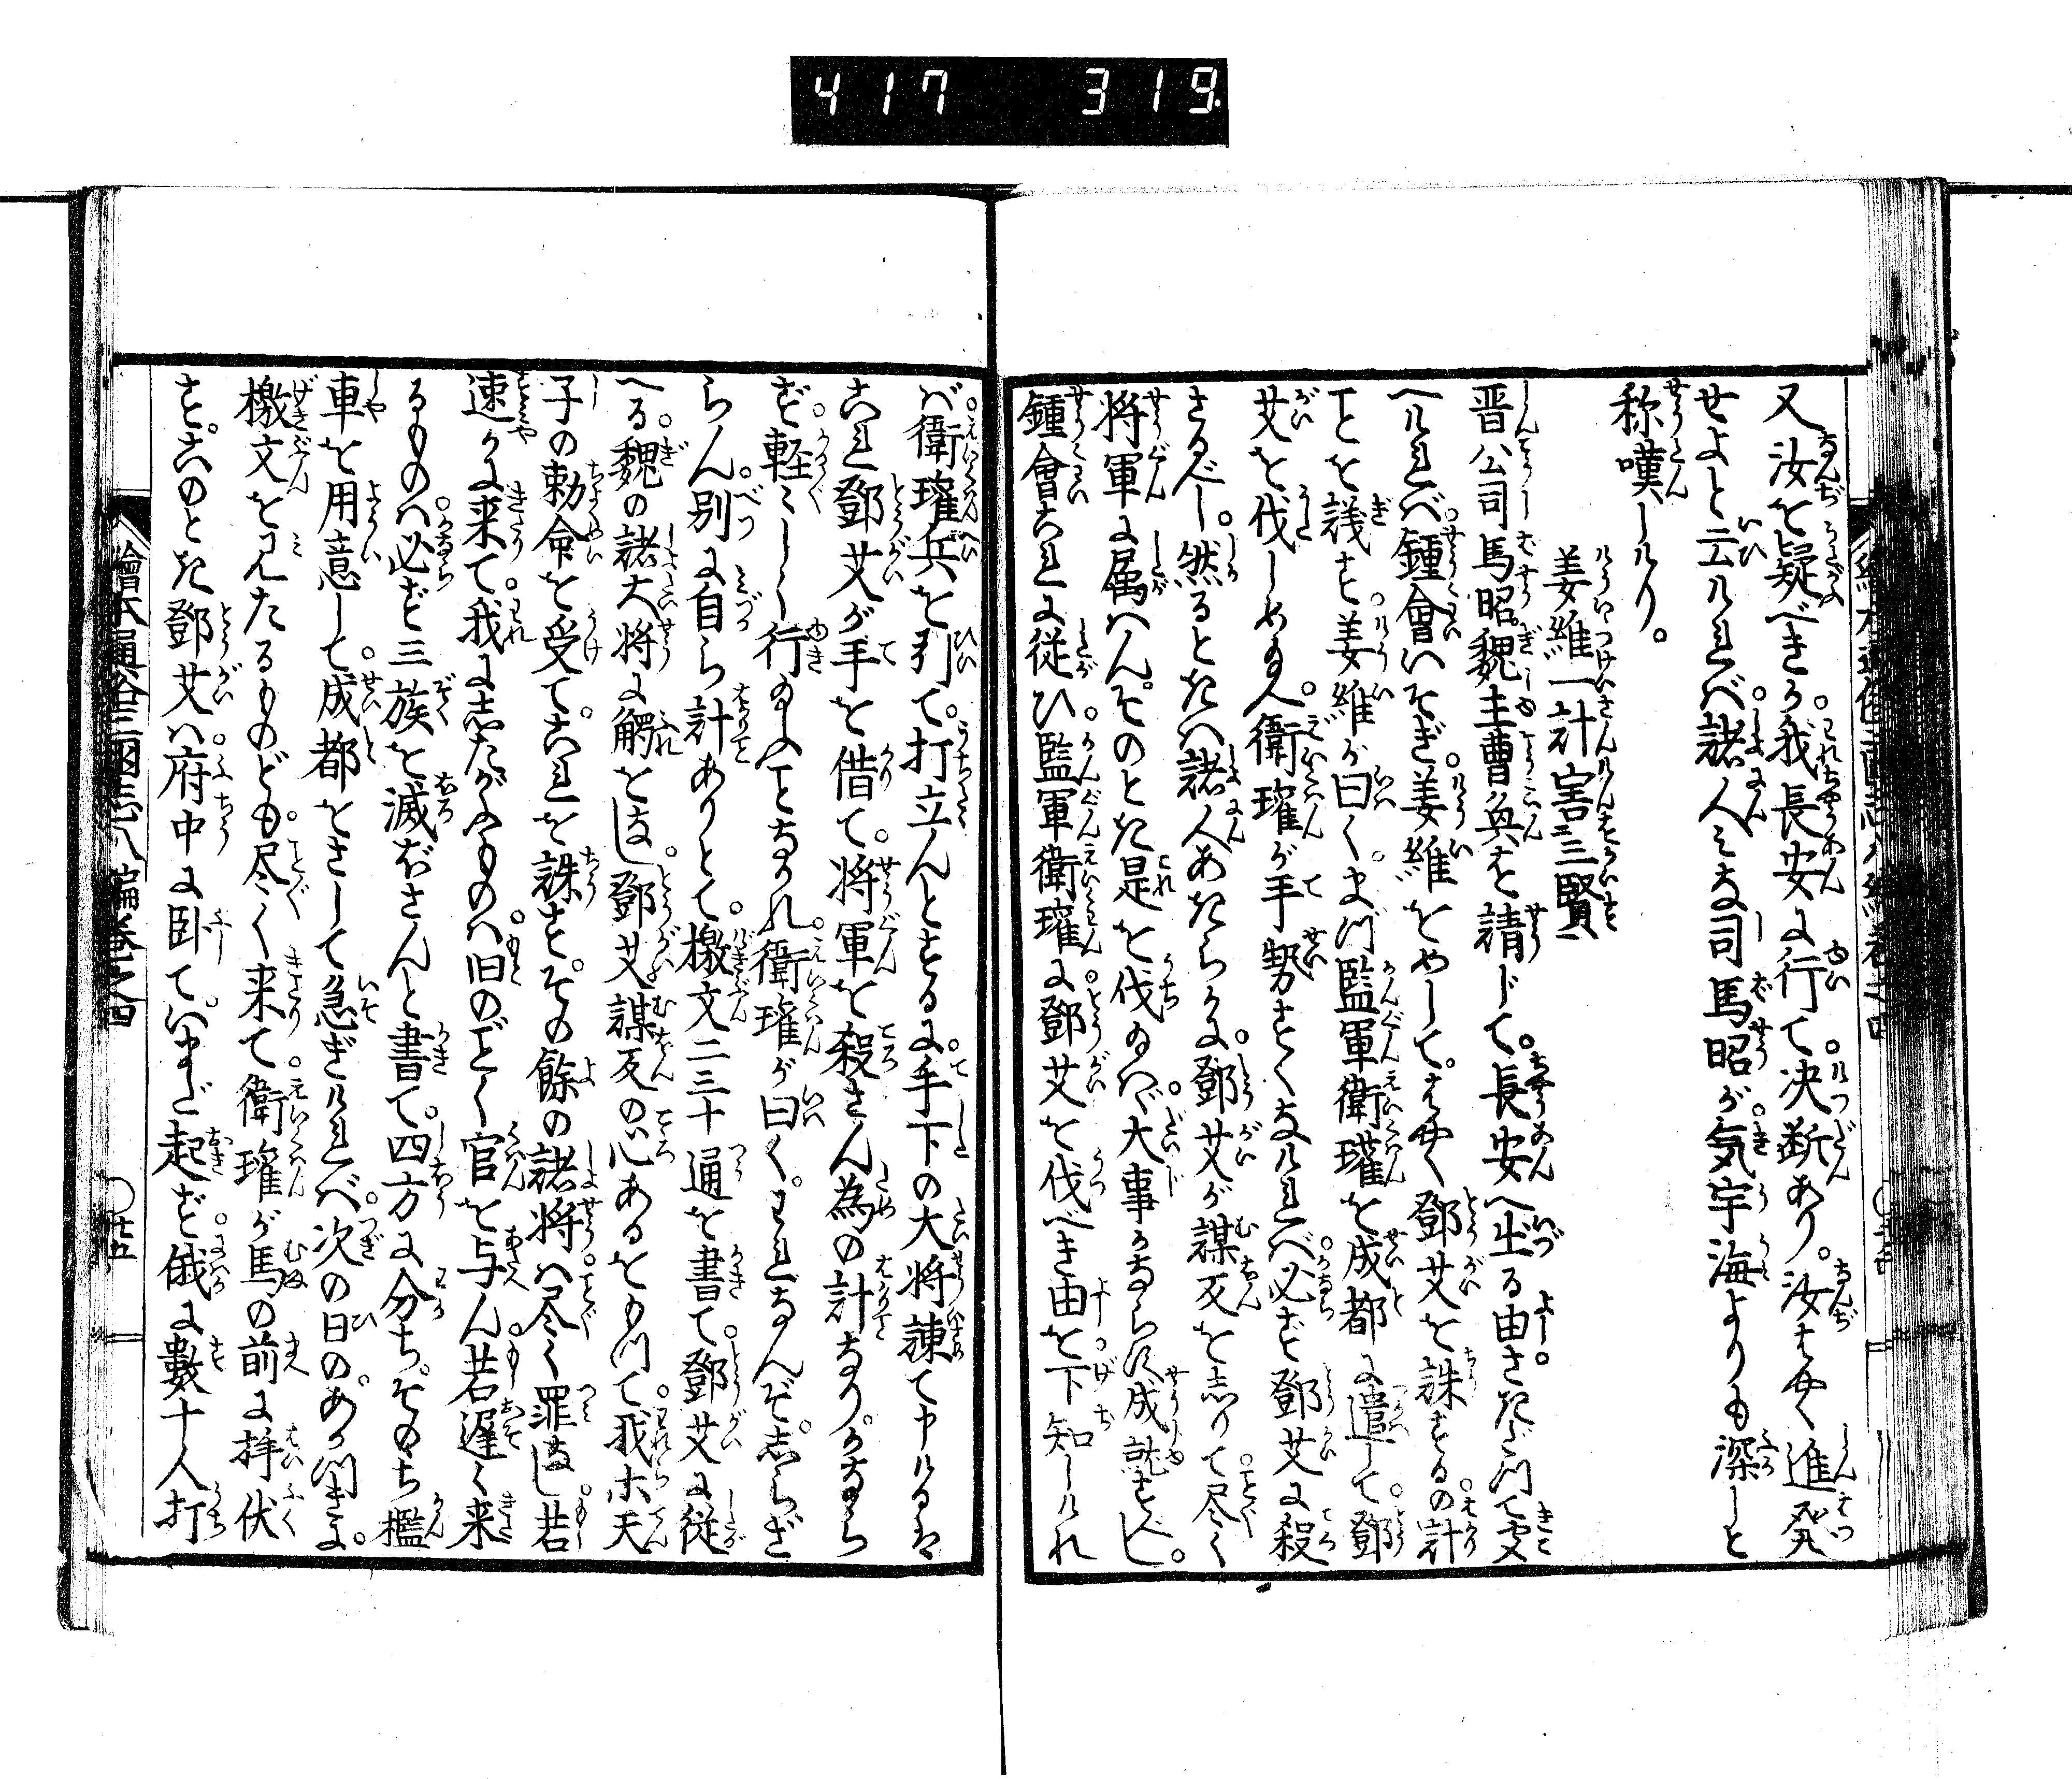 417 319
又汝を疑べきか。我長安に行て。决断あり。汝はやく進発
せよと云ければ。諸人みな司馬昭が。気宇海よりも深しと
称嘆しけり。
姜維一計害三賢
晋公司馬昭魏主曹奐を請じて。長安へ出る由。さだめて聞
へければ。鍾會いそぎ。姜維をめして。はやく鄧艾を誅するの計
ことを議す。姜維が曰く。まづ監軍衛瓘を成都に遣して。鄧
艾を伐しめ給へ。衛瓘が手勢すくなければ。必ず鄧艾に殺
さるべし。然るときは諸人あきらかに。鄧艾が謀反を志りて尽く
将軍に属はん。そのとき是を伐給はゞ。大事かならず成就すべし。
鍾會これに従ひ。監軍衛瓘に。鄧艾を伐べき由を下知しけれ
ば。衛瓘兵を引て。打立んとするに。手下の大将諌て申けるは
これ鄧艾が手を借て。将軍を殺さん為の計なり。かなら
ず。軽〻しく行給ふことなかれ。衛瓘が曰く。われなんぞ。志らざ
らん。別に自ら計ありとて。檄文二三十通を書て。鄧艾に従
へる。魏の諸大将に觸をほし。鄧艾。謀反の心あるをもつて。我ホ天
子の勅命を受て。これを誅す。その餘の諸将は。尽く罪なし。若
速かに来て。我に志たがふものは。旧のごとく官を与ん。若遅く来
るものは。必ず三族を滅ぼさんと書て。四方に分ち。そのゝち檻
車を用意して。成都をさして急ぎければ。次の日のあかつきに。
檄文を見たるものども。尽く来て。衛瓘が馬の前に拜伏
す。このとき鄧艾は。府中に臥て。いまだ起ず。俄に數十人打
繪本通俗三國志八編巻之四
〇廿五